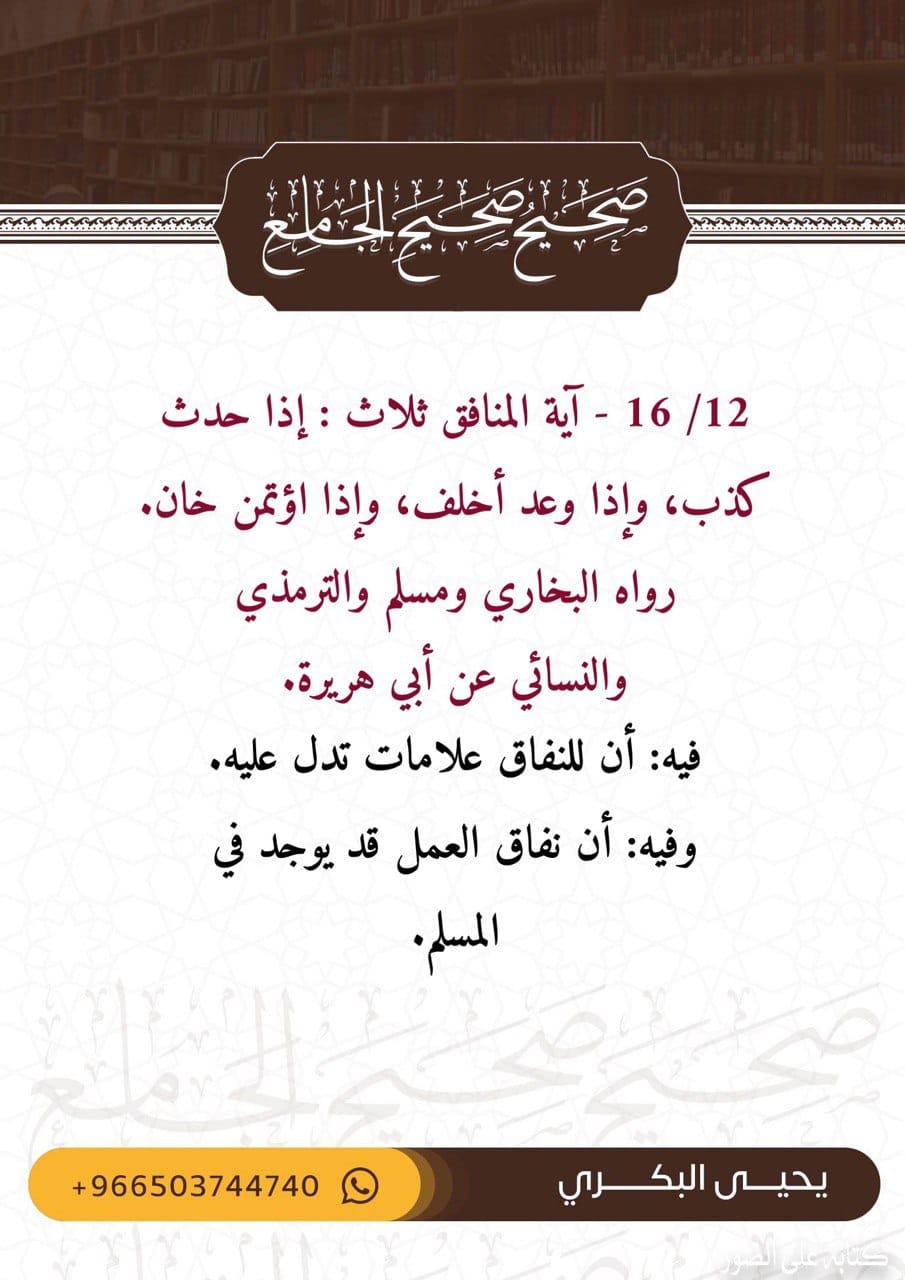 صَحِيحُ صَحِيحِ الجَامِعِ
12/ 16 - آية المنافق ثلاث : إذا حدث
كذب، وإذا وعد أخلف، وإذا اؤتمن خان.
رواه البخاري ومسلم والترمذي
والنسائي عن أبي هريرة.
فيه: أن للنفاق علامات تدل عليه.
وفيه: أن نفاق العمل قد يوجد في
المسلم.
صحيح صحيح الجامع
يحيـى البكـــري
+966503744740
كتابة على الصور